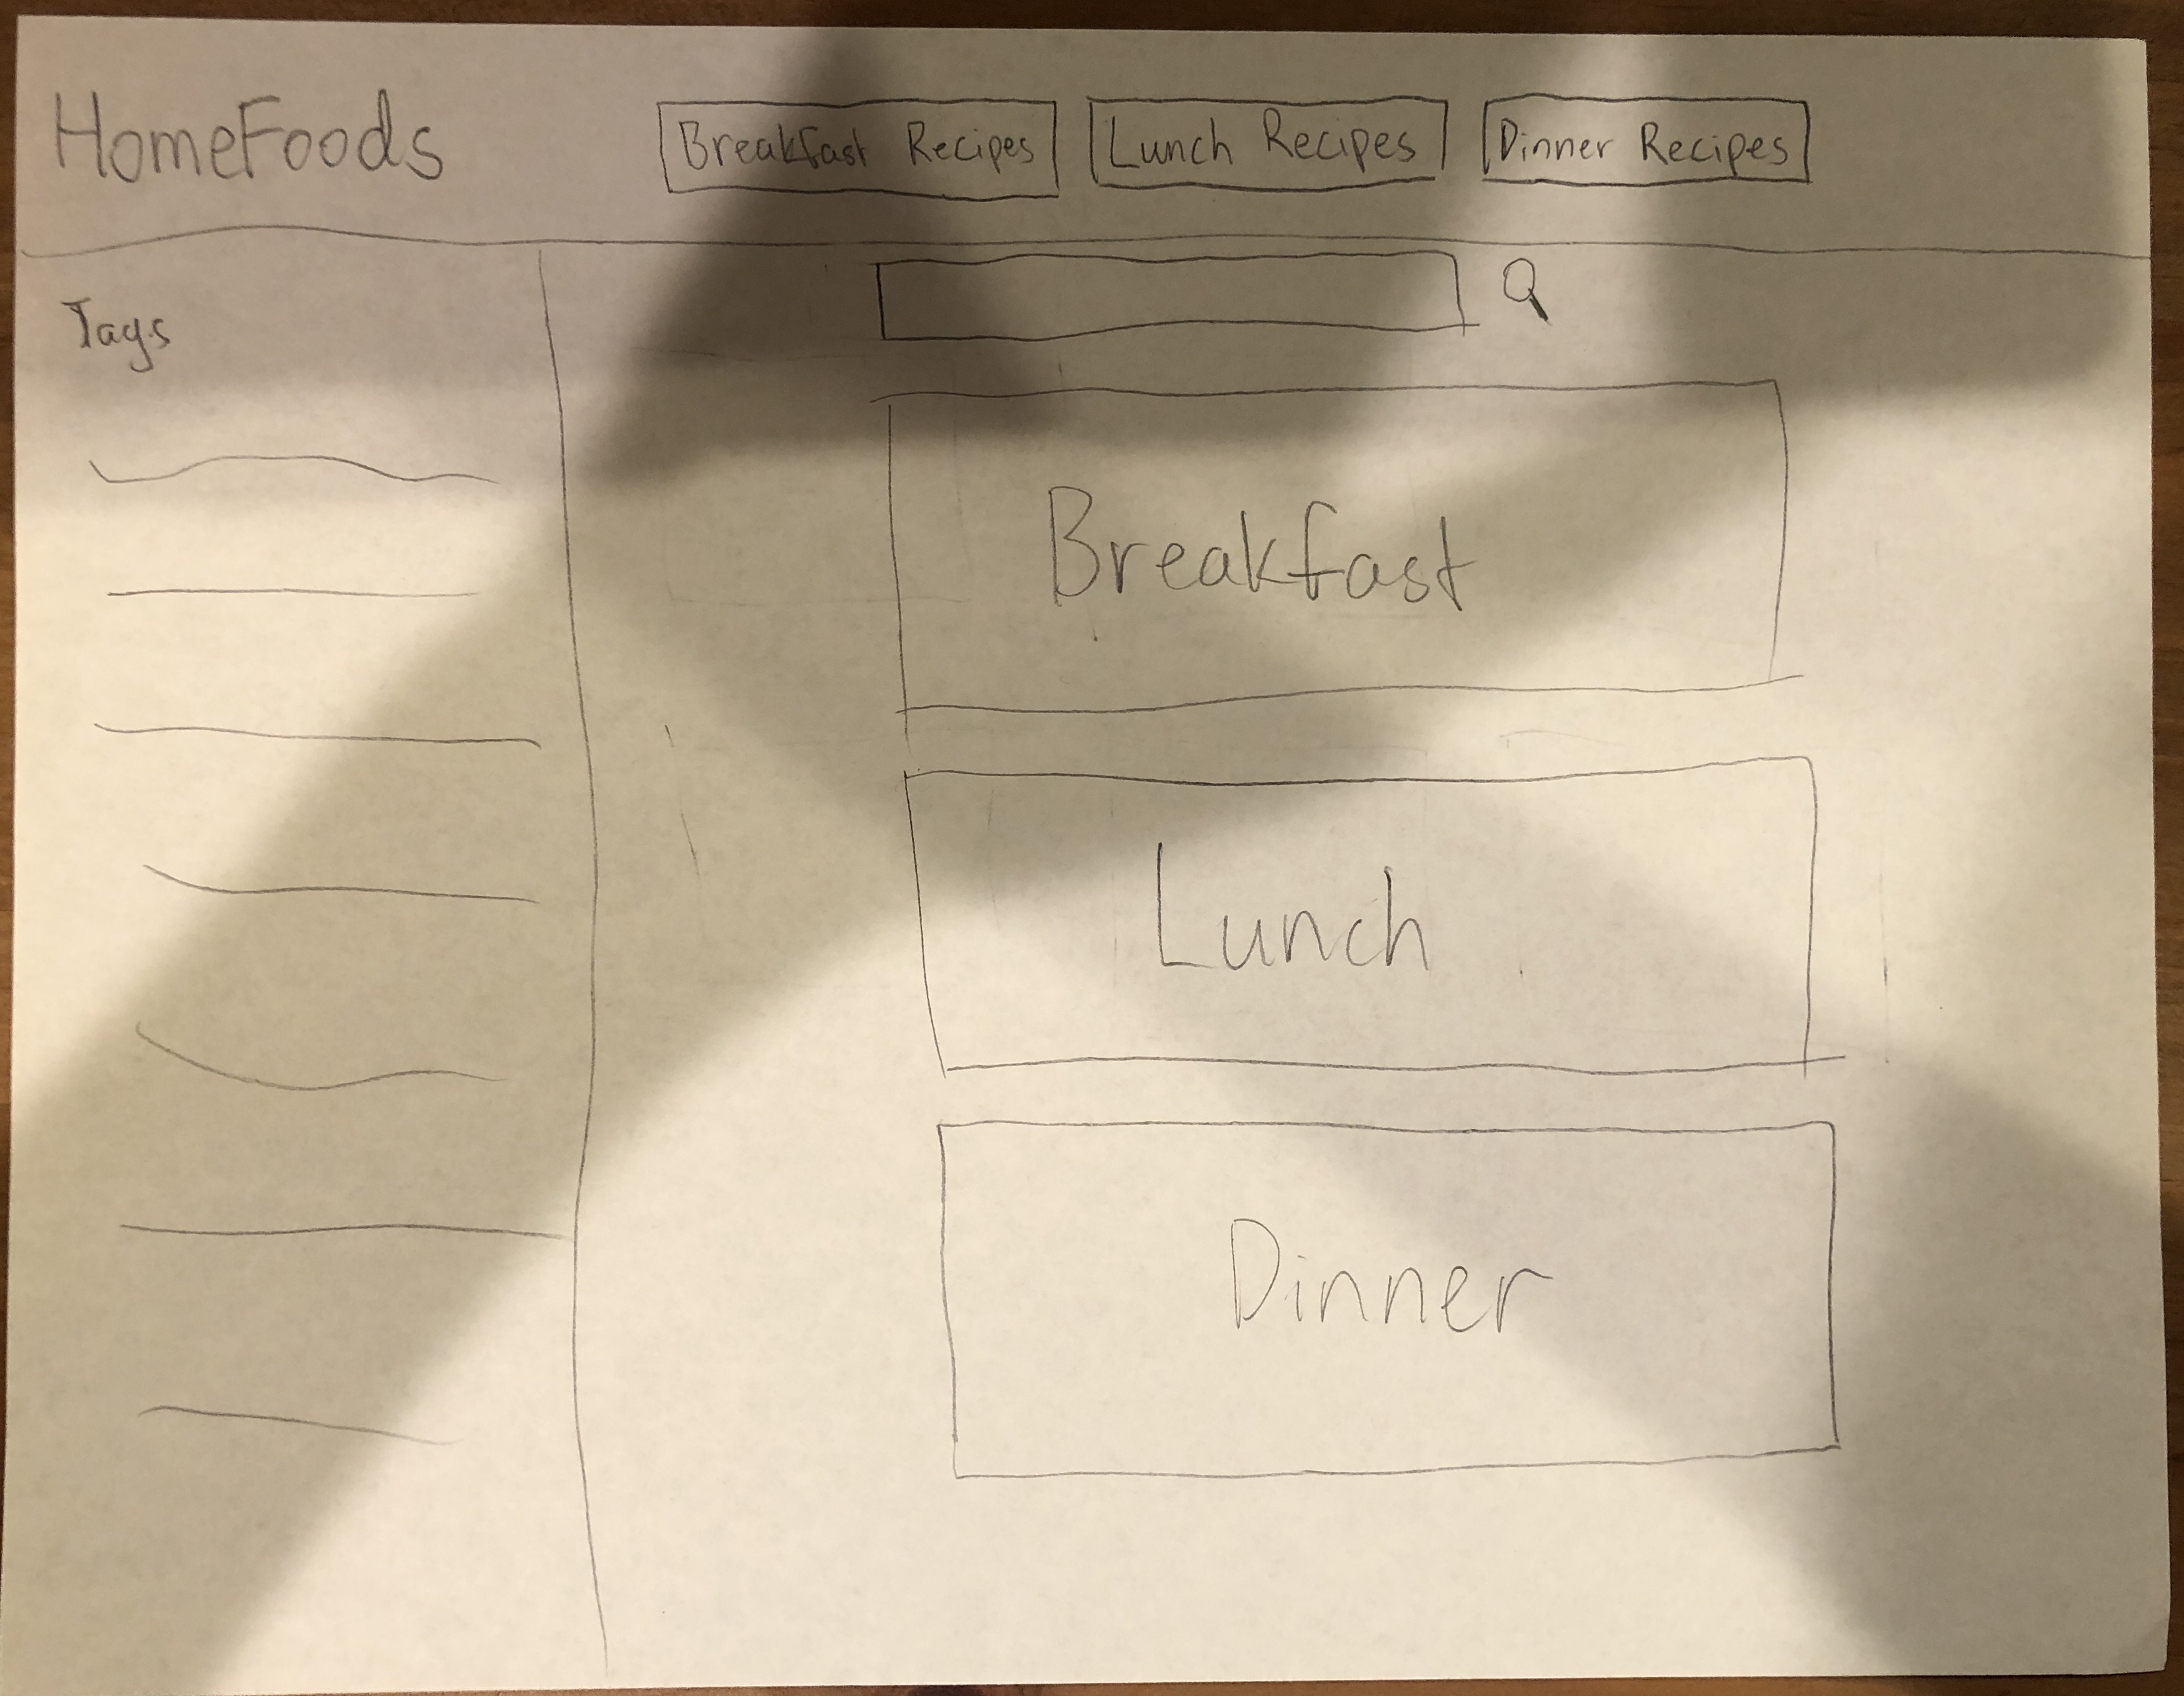 HomeFoods
Breakfast Recipes
Lunch Recipes
Dinner Recipes
Tags
Breakfast
Lunch
Dinner